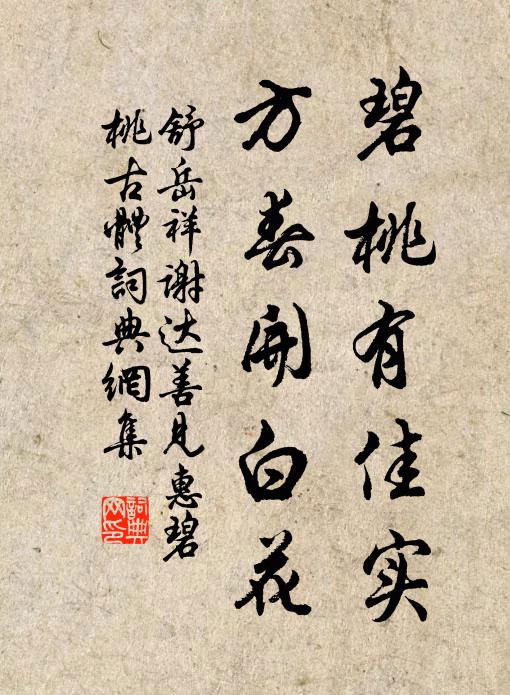 碧桃有佳实
方春開白花
舒岳祥谢达善见惠碧
桃古體詞典網集
詞典网印